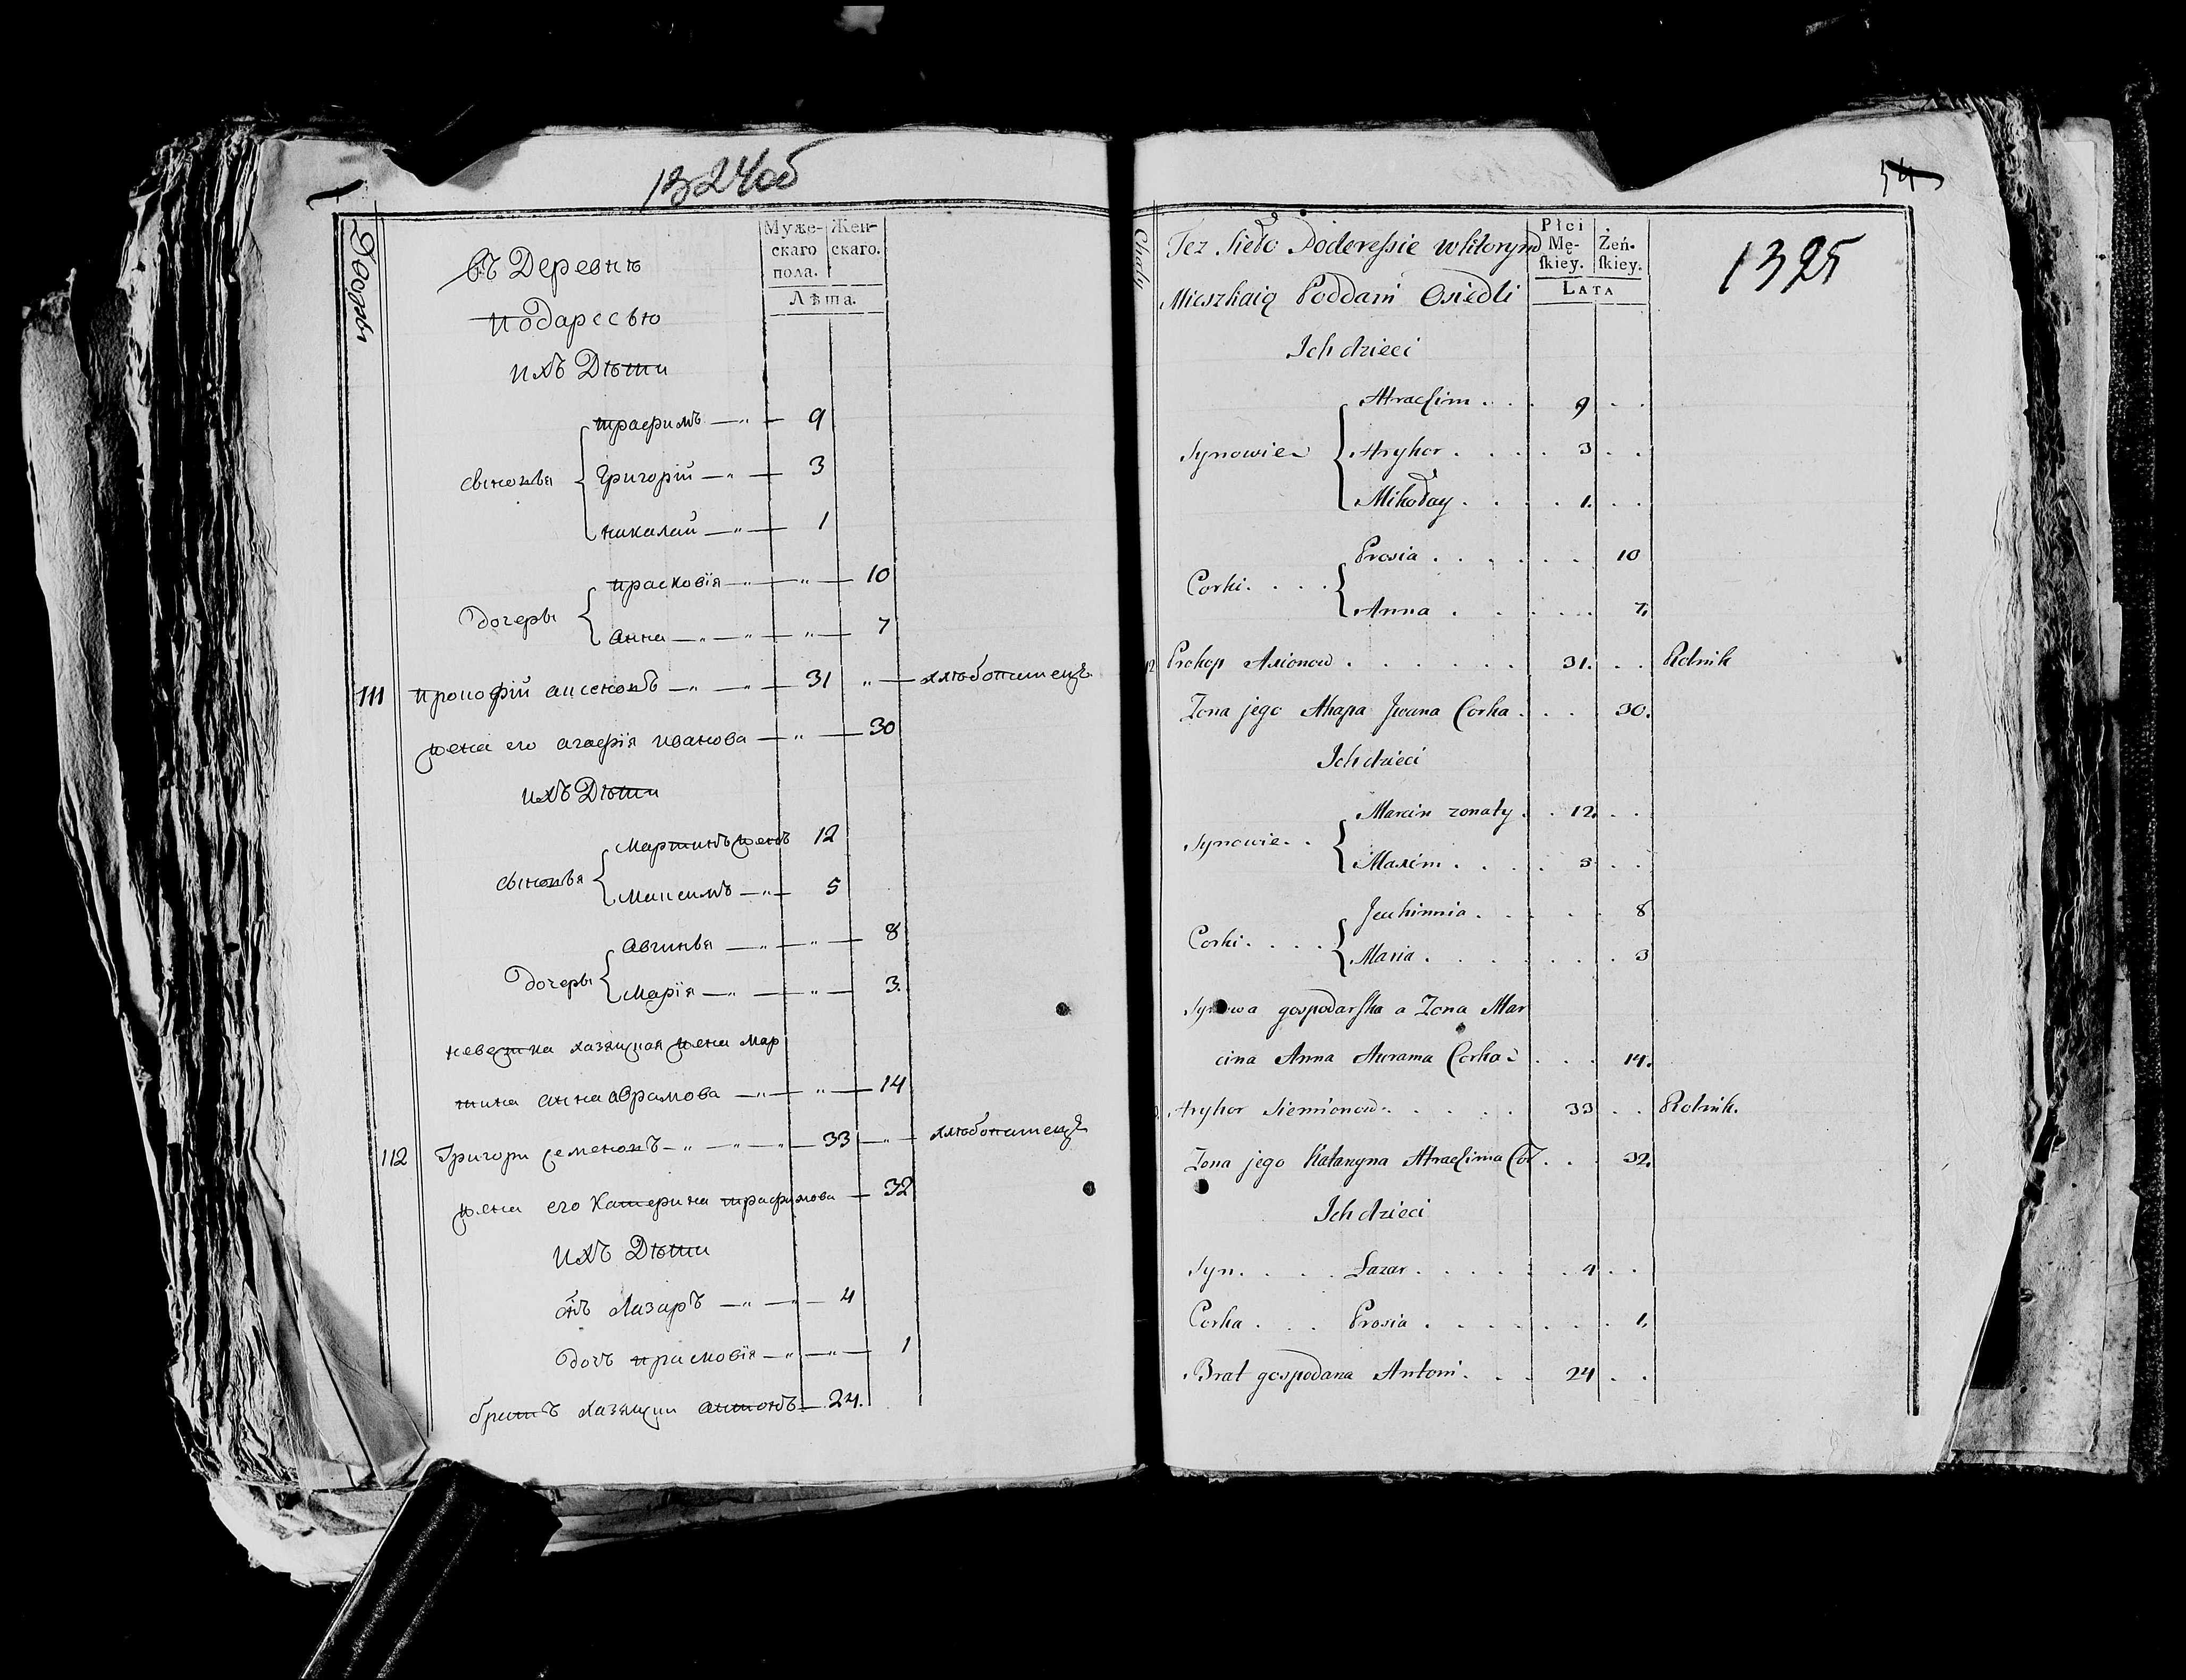 1324об
Дворы
въ Деревнѣ
Подарессью
Муже-
скаго
пола.
Жен-
скаго.
Лѣта.
ихъ Дѣти
сыновья
трафимъ 9
Григорій 3
никалай 1
дочеры
прасковія 10
анна 7
111 прокофій аксеновъ 31 хлѣбопашецъ
жена его агафія иванова 30
ихъ Дѣти
сыновья
Мартинъ женъ 12
Максимъ 5
дочеры
Авгинья 8
Марія 3.
невестка хазяиная жена мар
тина анна абрамова 14
112 Григори семеновъ 33 хлѣбопашецъ
жена его Катерина трафимова 32
ихъ Дѣти
сынъ Лазаръ 4
дочъ прасковія 1
братъ хазяини антонъ 24.
54
1325
Chaty
Tez Sieło Poderessie w ktorym
Mieszkaią Poddani Osiedli
Płci
Mę-
skiey.
Żeń-
skiey.
LATA
Ich dzieci
Synowie
Atrachim . . . 9 . .
Hryhor . . . . 3 . .
Mikołay . . . . 1. . .
Corki. . . .
Prosia . . . . . . 10
Anna . . . . . . 7.
Prokop Axionow . . . . . . 31. . . Rolnik
Zona jego Ahapa Jwana Corka . . . 30.
Ich dzieci
Synowie. .
Marcin zonaty . . 12. . .
Maxim . . . . 5 . .
Corki. . . .
Jeuhinnia . . . . 8
Maria . . . . . . 3
Synowa gospodarska a Zona Mar
cina Anna Aurama Corka . . . 14.
Hryhor Siemionow . . . . . 33 . . Rolnik.
Zona jego Katarzyna Atrachima Cor . . . 32.
Ich dzieci
Syn. . . . Lazar . . . . . . 4 . .
Corka . . . Prosia . . . . . . . 1.
Brat gospodarza Antoni . . . 24 . .